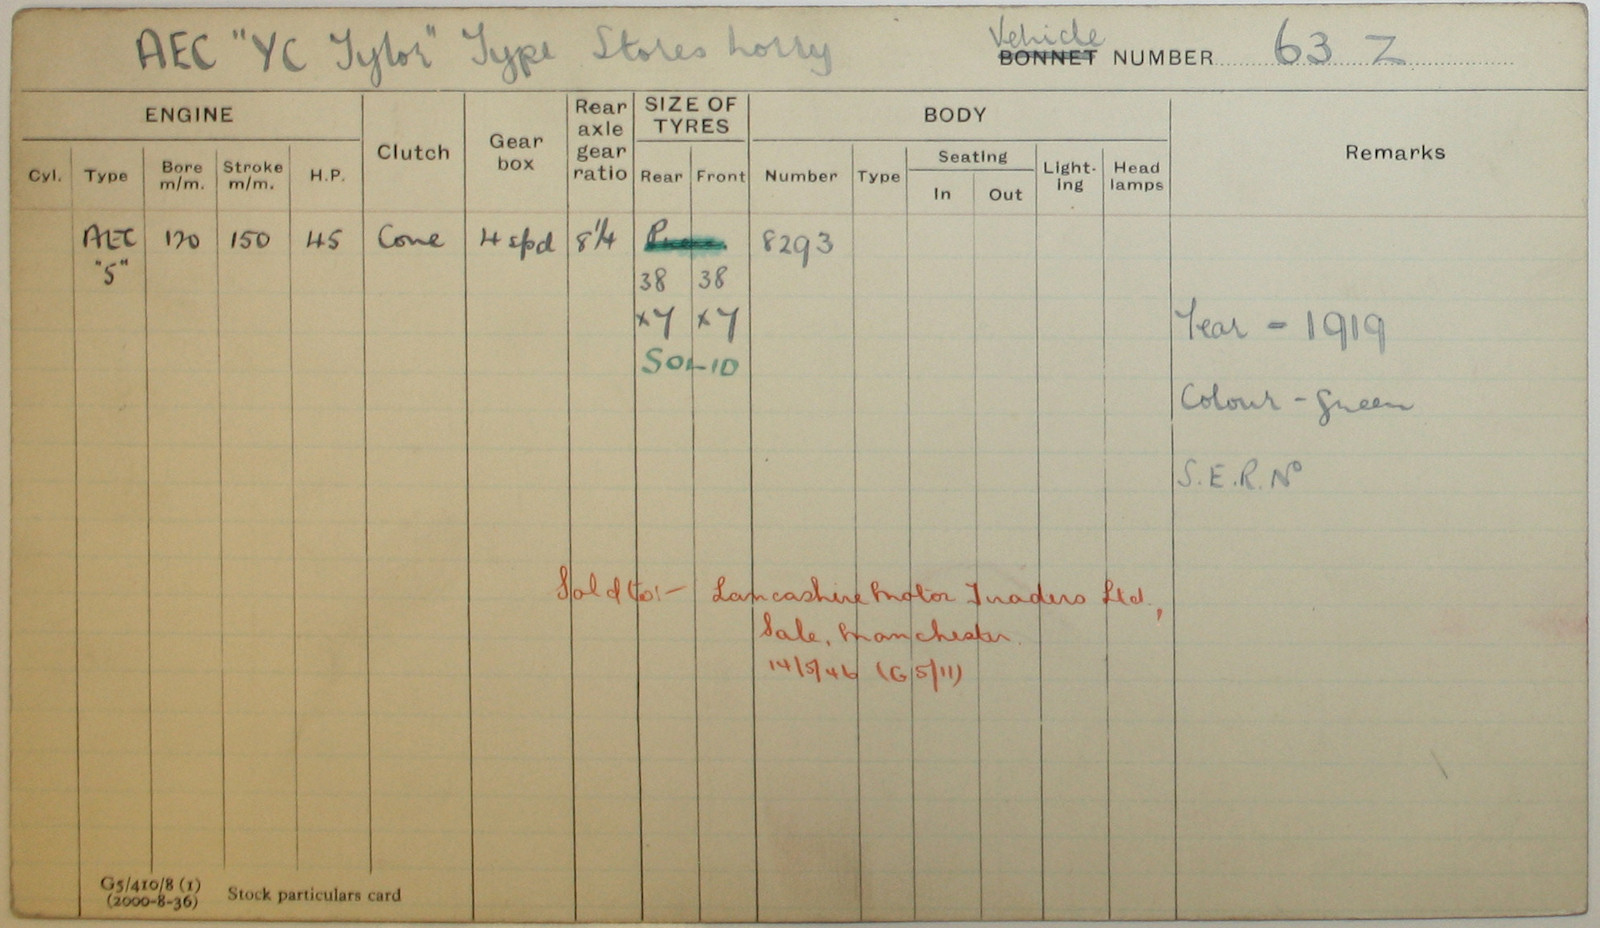 AEC "YC Tylor" Type Stores Lorry Vehicle BONNET NUMBER 63 Z
ENGINE Clutch Gear box Rear axle gear ratio SIZE OF TYRES BODY Remarks
Cyl. Type Bore m/m. Stroke m/m. H.P. Rear Front Number Type Seating In Out Light-ing Head lamps
AEC "5" 120 150 45 Cone 4 spd 8¼ 8293
38 38
x7 x7
SOLID
Year - 1919
Colour - green
S.E.R. Nº
Sold to:- Lancashire Motor Traders Ltd.,
Sale, Manchester.
14/5/46 (G 5/11)
G5/410/8 (1)
(2000-8-36) Stock particulars card